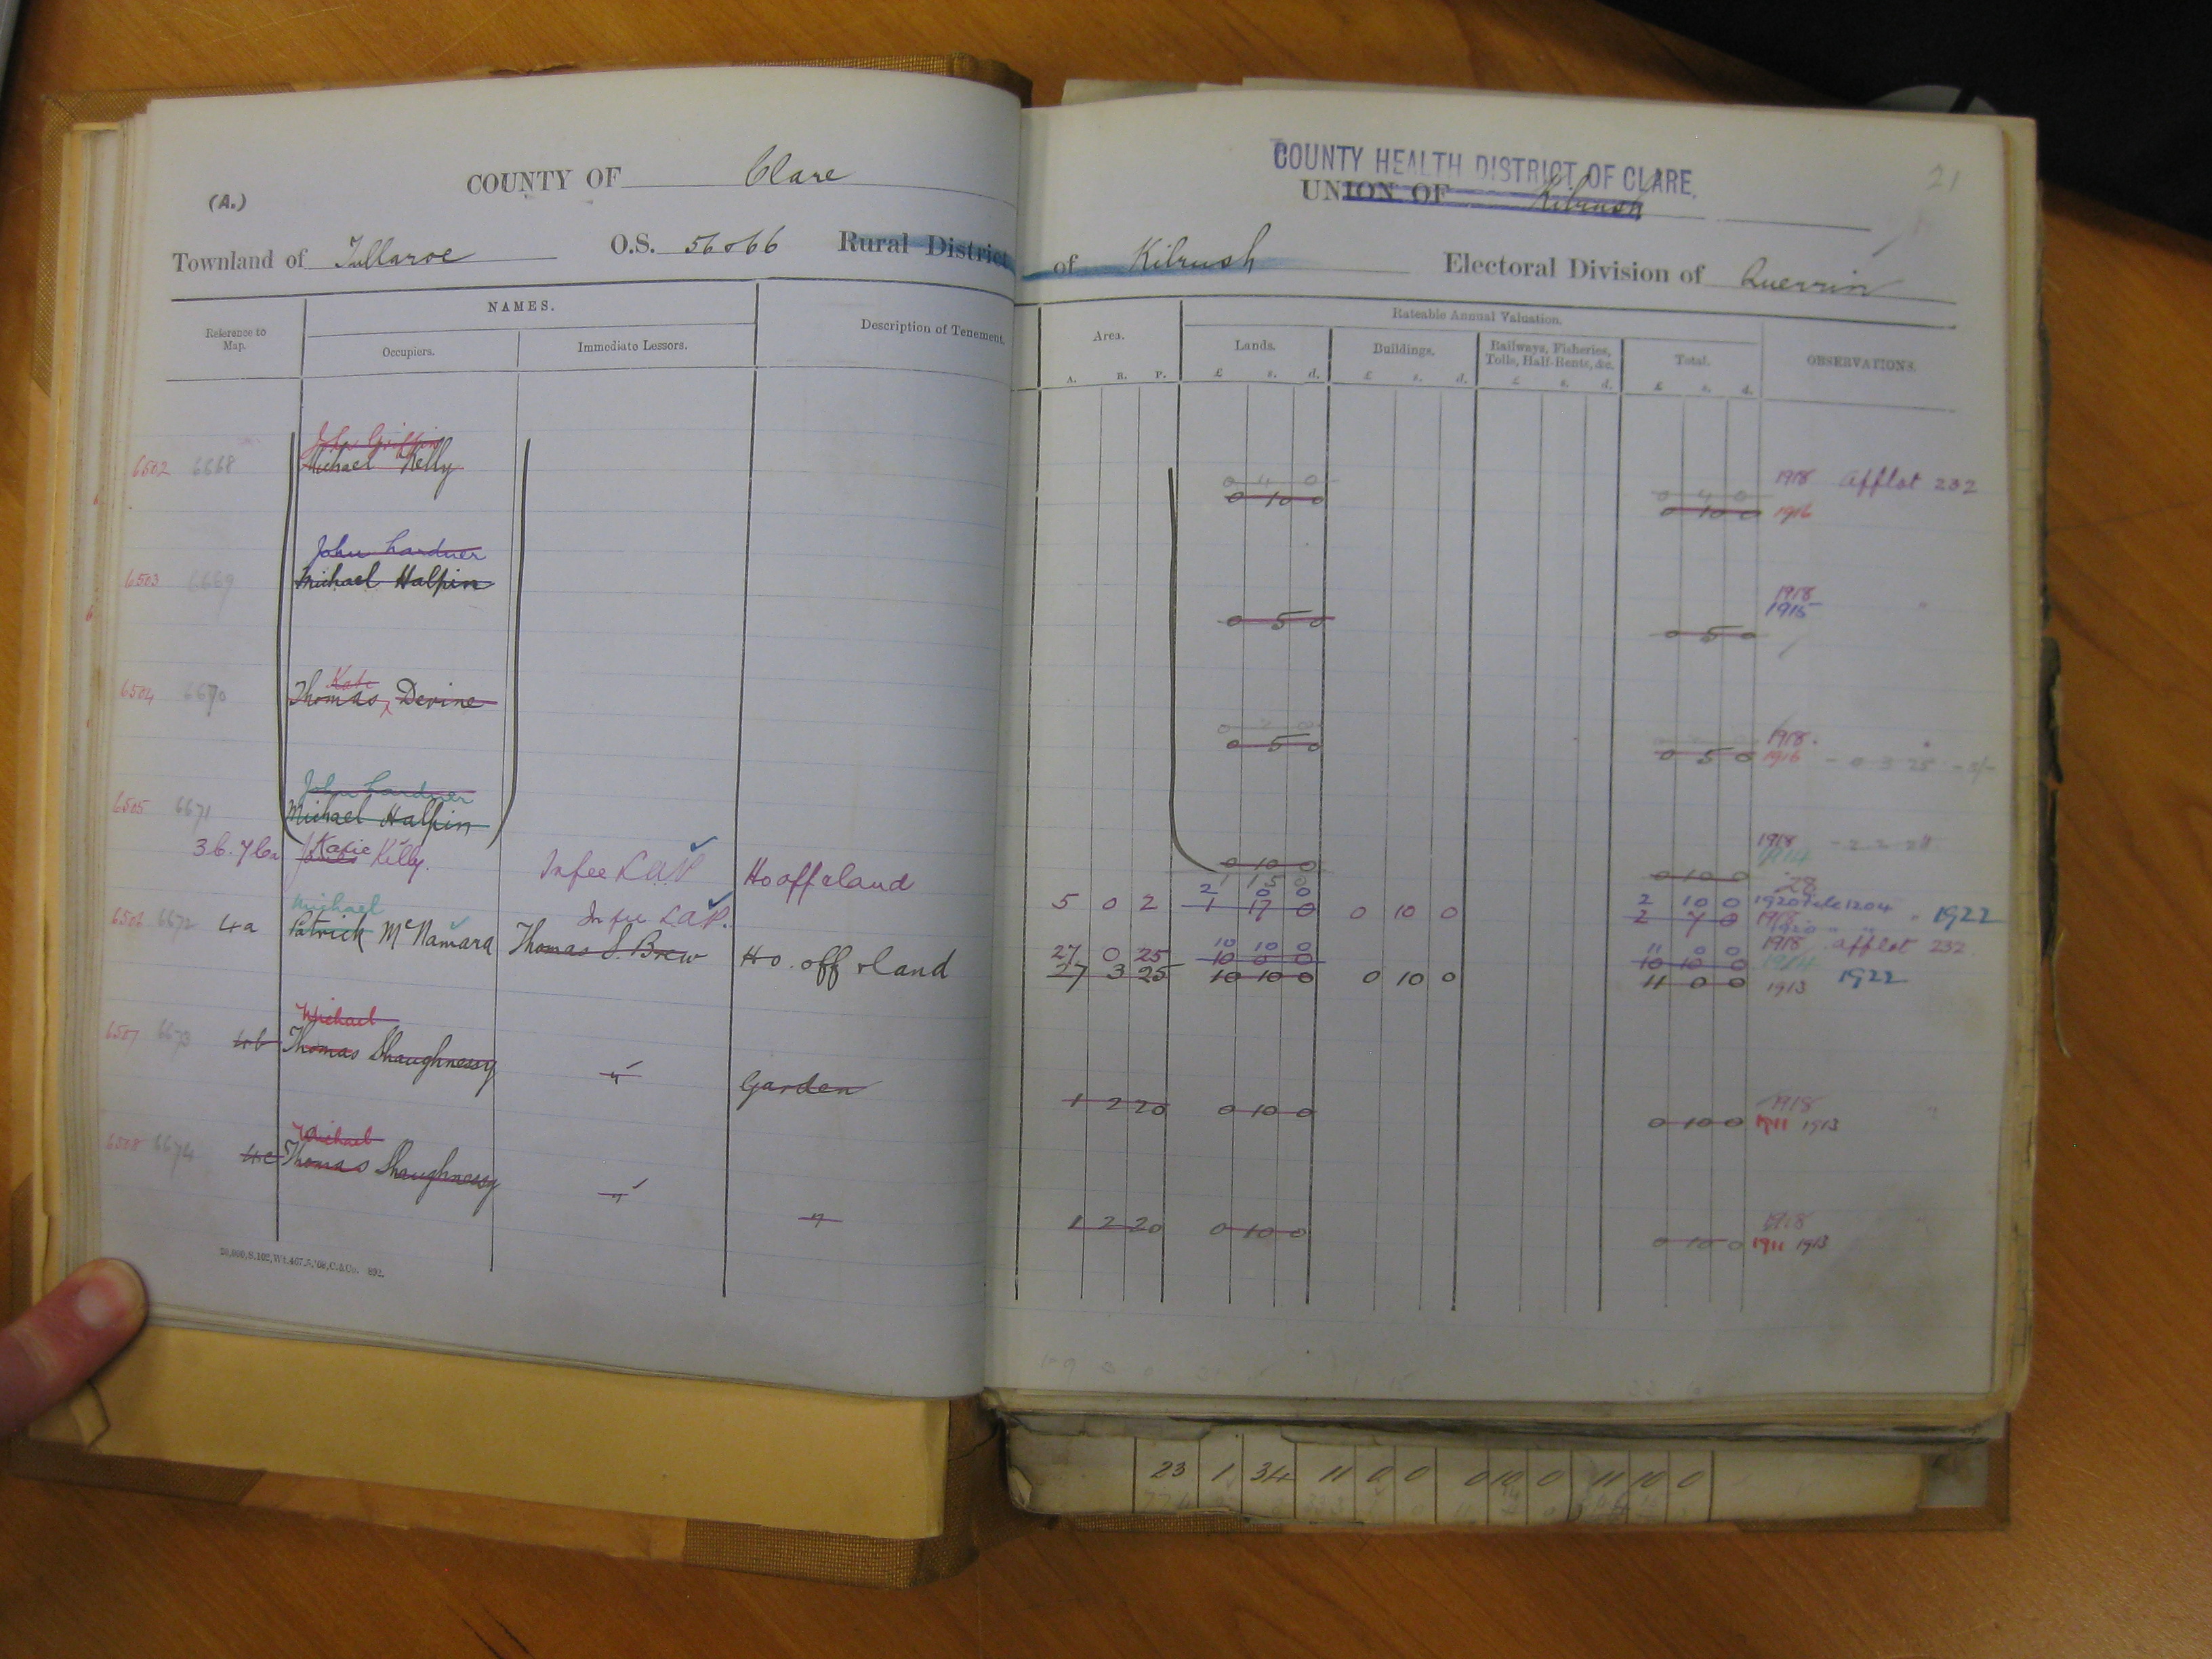 COUNTY HEALTH DISTRICT OF CLARE.
(A.) COUNTY OF Clare UNION OF Kilrush 21
Townland of Tullaroe O.S. 56 & 66 Rural District of Kilrush Electoral Division of Querrin
Reference to Map. NAMES. Description of Tenement. Area. Rateable Annual Valuation. OBSERVATIONS.
Occupiers. Immediate Lessors. Lands. Buildings. Railways, Fisheries, Tolls, Half-Rents, &c. Total.
A. R. P. £ s. d. £ s. d. £ s. d. £ s. d.
John Griffin
6502 6668 Michael Kelly
0 4 0 0 4 0 1918 afflot 232
0 10 0 0 10 0 1916
John Lardner
6503 6669 Michael Halpin
1918 "
1915
0 5 0 0 5 0
Kate
6504 6670 Thomas Devine
0 2 0 1918
0 5 0 0 5 0 1916 - 0 3 25
John Lardner
6505 6671 Michael Halpin
1918
1914
0 10 0 0 10 0
1 15 0 28
Katie
3b. 7ba James Kelly. In fee L.A.P. Ho off & land
2 0 0 2 10 0 1920
5 0 2 1 17 0 0 10 0 2 7 0 1918 " 1922
Michael In fee L.A.P.
6506 6672 4a Patrick McNamara Thomas S. Brew Ho. off & land
10 10 0 11 0 0 1918 afflot 232
27 0 25 10 0 0 10 10 0 1914
27 3 25 10 10 0 0 10 0 11 0 0 1913 1922
Michael
6507 6673 4b Thomas Shaughnessy " Garden
1918 "
1 2 20 0 10 0 0 10 0 1911 1913
Michael
6508 6674 4c Thomas Shaughnessy " "
1918
1 2 20 0 10 0 0 10 0 1911 1913
23 1 34 11 0 0 0 10 0 11 10 0